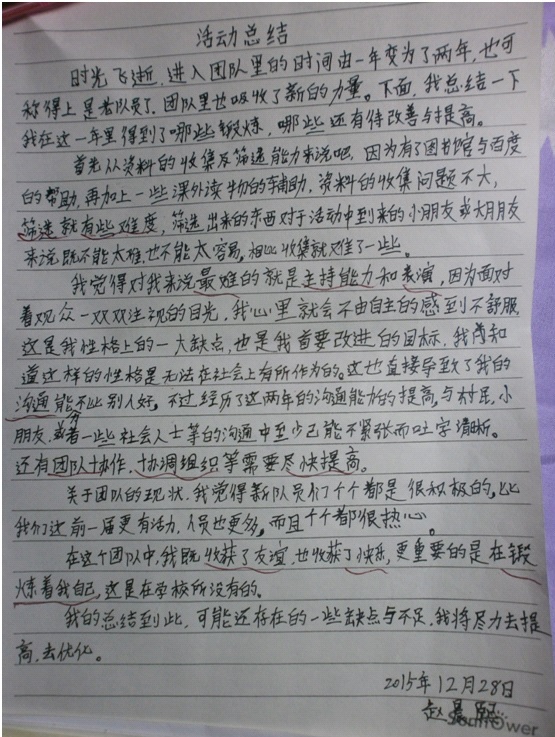 活动总结
时光飞逝，进入团队里的时间由一年变为了两年，也可
称得上是老队员了。团队里也吸收了新的力量。下面，我总结一下
我在这一年里得到了哪些锻炼，哪些还有待改善与提高。
首先从资料的收集及筛选能力来说吧，因为有了图书馆与百度
的帮助，再加上一些课外读物的辅助，资料的收集问题不大，
筛选就有些难度，筛选出来的东西对于活动中到来的小朋友或大朋友
来说既不能太难，也不能太容易，相比收集就难了一些。
我觉得对我来说最难的就是主持能力和表演，因为面对
着观众一双双注视的目光，我心里就会不由自主的感到不舒服，
这是我性格上的一大缺点，也是我首要改进的目标，我尚知
道这样的性格是无法在社会上有所作为的。这也直接导致了我的
沟通能力不比别人好，不过经历了这两年的沟通能力的提高，与村民、小
朋友、或者一些社会人士等的沟通中至少已能不紧张而吐字清晰。
还有团队协作，协调组织等需要尽快提高。
关于团队的现状，我觉得新队员们个个都是很积极的，比
我们这前一届更有活力，人员也更多，而且个个都很热心。
在这个团队中，我既收获了友谊，也收获了快乐，更重要的是在锻
炼着我自己，这是在学校所没有的。
我的总结到此，可能还存在的一些缺点与不足，我将尽力去提
高，去优化。
2015年12月28日
赵